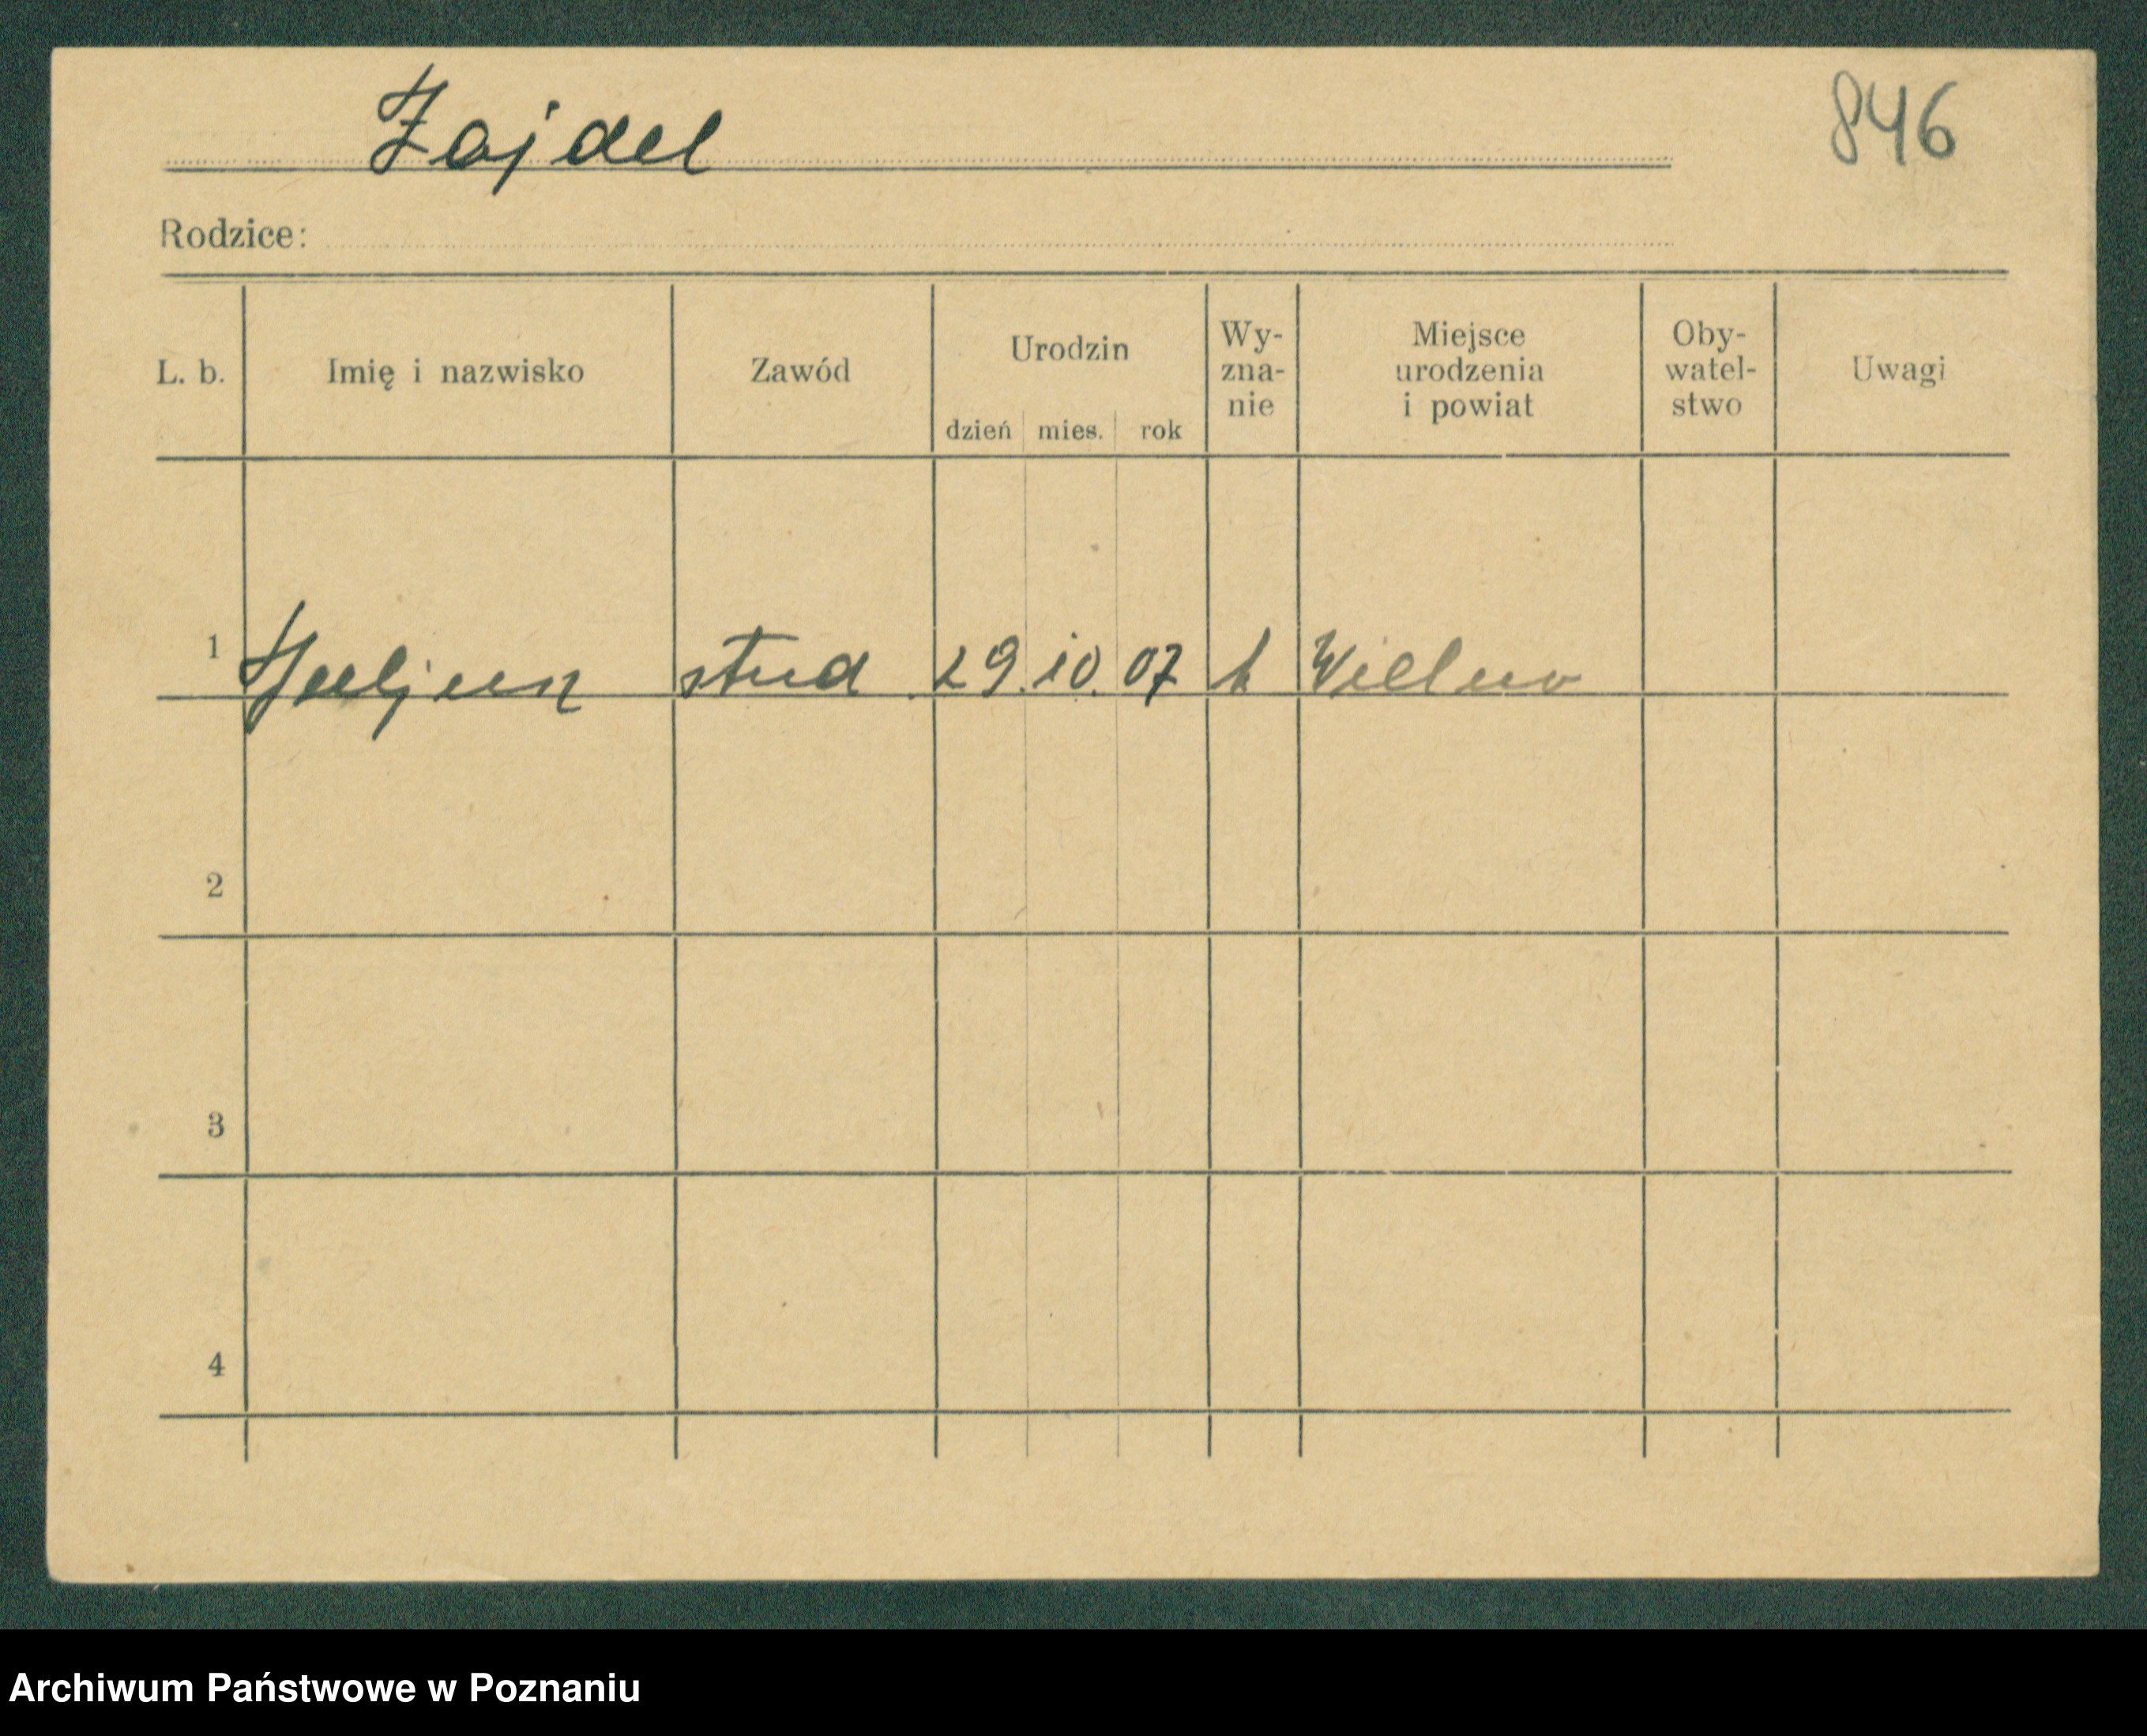 Zajdel
846
Rodzice:
L. b.
Imię i nazwisko
Zawód
Urodzin
dzień mies. rok
Wy-
zna-
nie
Miejsce
urodzenia
i powiat
Oby-
watel-
stwo
Uwagi
1 Juljan stud 29. 10. 07 k Wilno
2
3
4
Archiwum Państwowe w Poznaniu